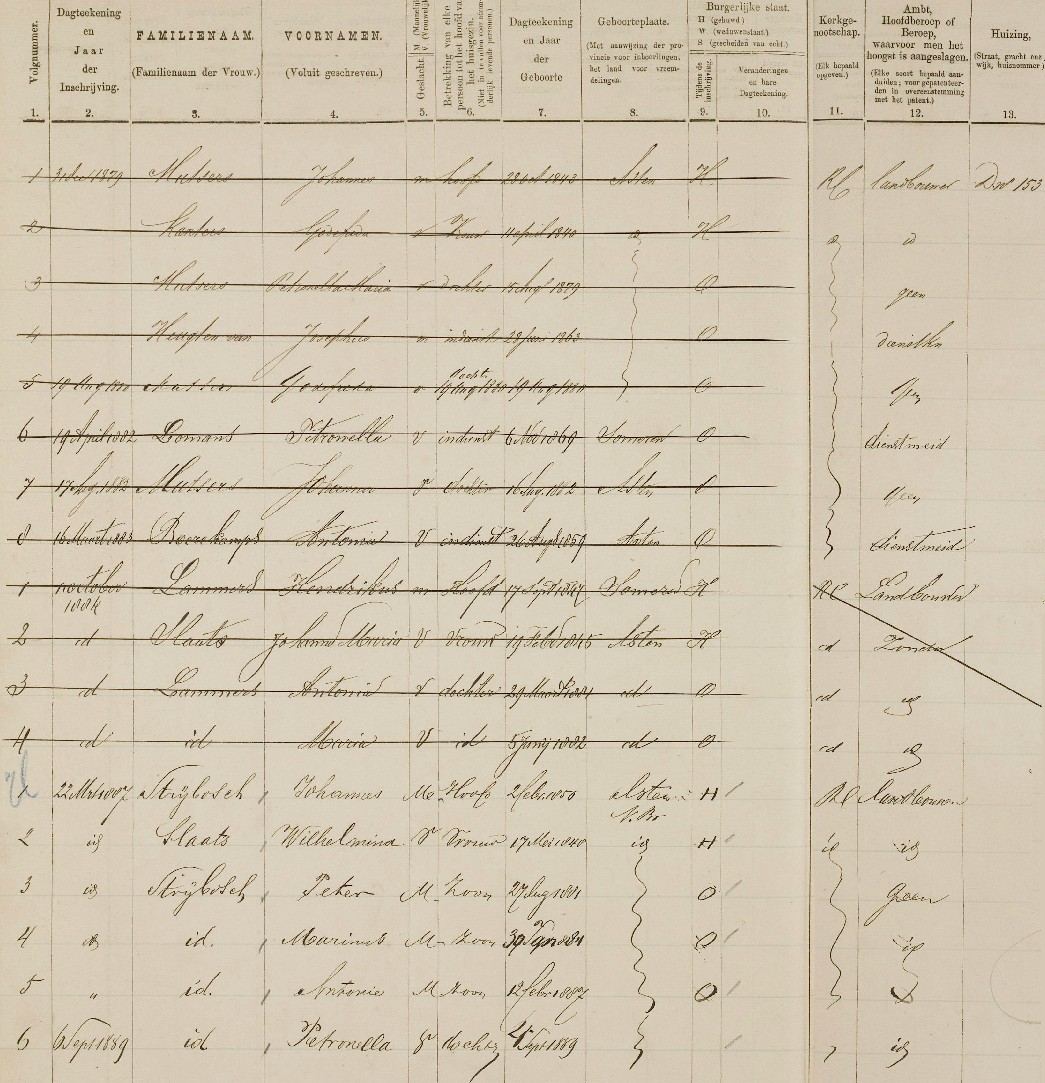 Volgnummer.
Dagteekening en Jaar der Inschrijving.
FAMILIENAAM.
(Familienaam der Vrouw.)
VOORNAMEN.
(Voluit geschreven.)
Geslacht. M (Mannelijk) V (Vrouwelijk)
Betrekking van elke persoon tot het hoofd van het huisgezin.
Dagteekening en Jaar der Geboorte
Geboorteplaats.
(Met aanwijzing der provincie voor inboorlingen, het land voor vreemdelingen.)
Burgerlijke staat.
H (gehuwd)
W (weduwenstaat.)
S (gescheiden van echt.)
Tijdens de inschrijving.
Veranderingen en hare Dagteekening.
Kerkgenootschap.
(Elk bepaald opgeven.)
Ambt, Hoofdberoep of Beroep, waarvoor men het hoogst is aangeslagen.
(Elke soort bepaald aanduiden; voor gepatenteerden in overeenstemming met het patent.)
Huizing,
1. 2. 3. 4. 5. 6. 7. 8. 9. 10. 11. 12. 13.
1 31 dec 1879 Mutsers Johannes m hoofd 28 oct 1843 Asten H RC landbouwer 153
2 Kanters Godefreda v Vrouw 11 april 1840 id H id id
3 Mutsers Petronella Maria v dochter 15 Aug 1879 O geen
4 Heugten van Josephus m indienst 28 Juni 1863 O dienstkn
5 19 Aug 1880 Mutsers Godefreda v docht. 19 Aug 1880 19 Aug 1880 O Geen
6 19 April 1882 Lomans Petronella V indienst 6 Nov 1869 Someren O dienstmeid
7 17 Aug. 1882 Mutsers Johanna V dochter 16 Aug. 1882 Asten O Geen
8 16 Maart 1883 Beerekamps Antonia V indienst 26 Aug 1859 Asten O dienstmeid
1 october 1884 Lammers Hendrikus m Hoofd 17 Sept Someren H RC Landbouwer
2 id Slaats Johanna Maria V Vrouw 19 Feb 1845 Asten H id Zonder
3 id Lammers Antonia V dochter 29 Maart 1881 id O id id
4 id id Maria V id 5 Junij 1882 id O id id
1 22 Mrt 1887 Strijbosch Johannes M Hoofd 2 febr. 1850 Asten N. Br H RC Landbouwer
2 id Slaats Wilhelmina V Vrouw 17 Mei 1840 id H id id
3 id Strijbosch Peter M Zoon 27 Aug 1881 O Geen
4 id id. Marinus M Zoon 30 Jan 1884 O id
5 " id. Antonie M Zoon 12 febr 1887 O
6 6 Sept 1889 id Pietronella V dochter Sept 1889 id